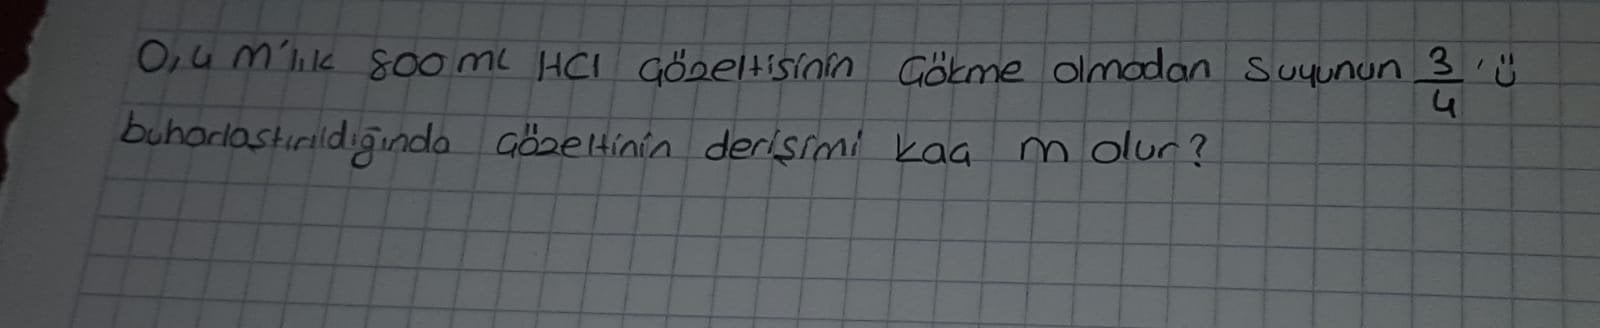 0,4 M'lık 800 mL HCl çözeltisinin çökme olmadan suyunun 3/4 'ü
buharlastırıldığında çözeltinin derişimi kaç M olur?